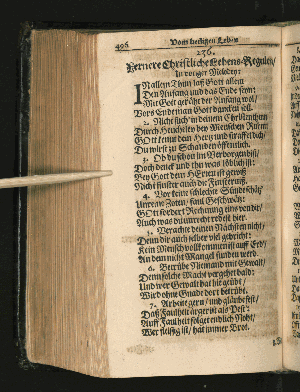 496 Vom heiligen Leben
236.
Fernere Christliche Lebens-Regulen/
In voriger Melodey:
IN allem Thun laß Gott allein
Den Anfang und das Ende seyn:
Mit Gott geräht der Anfang wol/
Vors Ende man Gott dancken sol.
2. Nicht such in deinem Christenthum
Durch Heucheley bey Menschen Ruhm
Gott kennt dein Hertz und straffet dich/
Du wirst zu Schanden öffentlich.
3. Ob du schon im Verborgen bist/
Doch denck und thu was löblich ist:
Bey Gott dem HErren ist gewiß
Nicht finster auch die Finsternüß.
4. Vor keine schlechte Sünde schätz/
Unreine Zoten/ faul Geschwätz:
GOtt fordert Rechnung eins von dir/
Auch was du unrecht redest hier.
5. Verachte deinen Nächsten nicht/
Denn dir auch selber viel gebricht:
Kein Mensch vollkommen ist auff Erd/
An dem nicht Mangel funden werd.
6. Betrübe Niemand mit Gewalt/
Denn solche Macht vergehet bald:
Und wer Gewalt hat hie geübt/
Wird ohne Gnade dort betrübt.
7. Arbeite gern/ und gläube fest/
Daß Faulheit ärger ist als Pest:
Auff Faulheit folget endlich Noht/
Wer fleissig ist/ hat immer Brot.